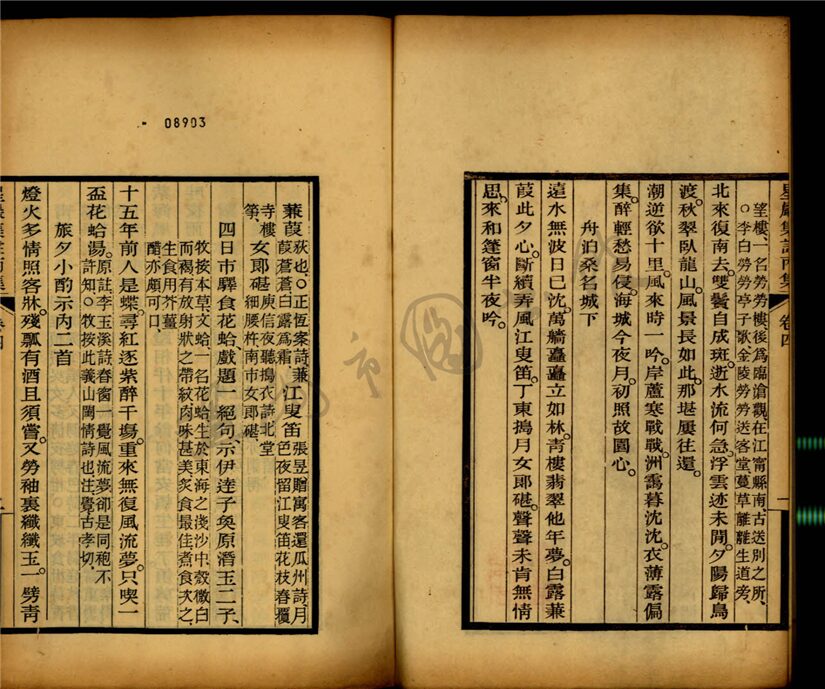 望樓一名勞勞樓後爲臨滄觀在江甯縣南古送別之所、
○李白勞勞亭子歌金陵勞勞送客堂蔓草離離生道旁、
北來復南去。雙鬢自成斑。逝水流何急。浮雲迹未閒。夕陽歸鳥
渡。秋翠臥龍山。風景長如此。那堪屢往還。
潮逆欲十里。風來時一吟。岸蘆寒戰戰。洲靄暮沈沈。衣薄露偏
集。醉輕愁易侵。海城今夜月。初照故園心。
舟泊桑名城下
遠水無波日已沈。萬檣矗矗立如林。青樓翡翠他年夢。白露蒹
葭此夕心。斷續弄風江叟笛。丁東搗月女郎碪。聲聲未肯無情
思。來和篷窗半夜吟。
08903
蒹葭荻也、○正恆案詩蒹
葭蒼蒼白露爲霜、江叟笛張昱贈寓客還瓜州詩月
色夜留江叟笛花枝春覆
寺樓、女郎碪庾信夜聽搗衣詩北堂
細腰杵南市女郎碪、
四日市驛食花蛤戲題一絕句示伊達子奐原潛玉二子、
牧按本草文蛤一名花蛤生於東海之淺沙中殼微白
而褐有放射狀之帶紋肉味甚美炙食最佳煮食次之
生食用芥薑
醋亦頗可口
十五年前人是蝶。尋紅逐紫醉千塲。重來無復風流夢。只喫一
盃花蛤湯。原註李玉溪詩春窗一覺風流夢卻是同袍不
許知○牧按此義山閨情詩也注覺古孝切、
旅夕小酌示內二首
燈火多情照客牀。殘瓢有酒且須嘗。又勞袖裏纖纖玉。一劈青